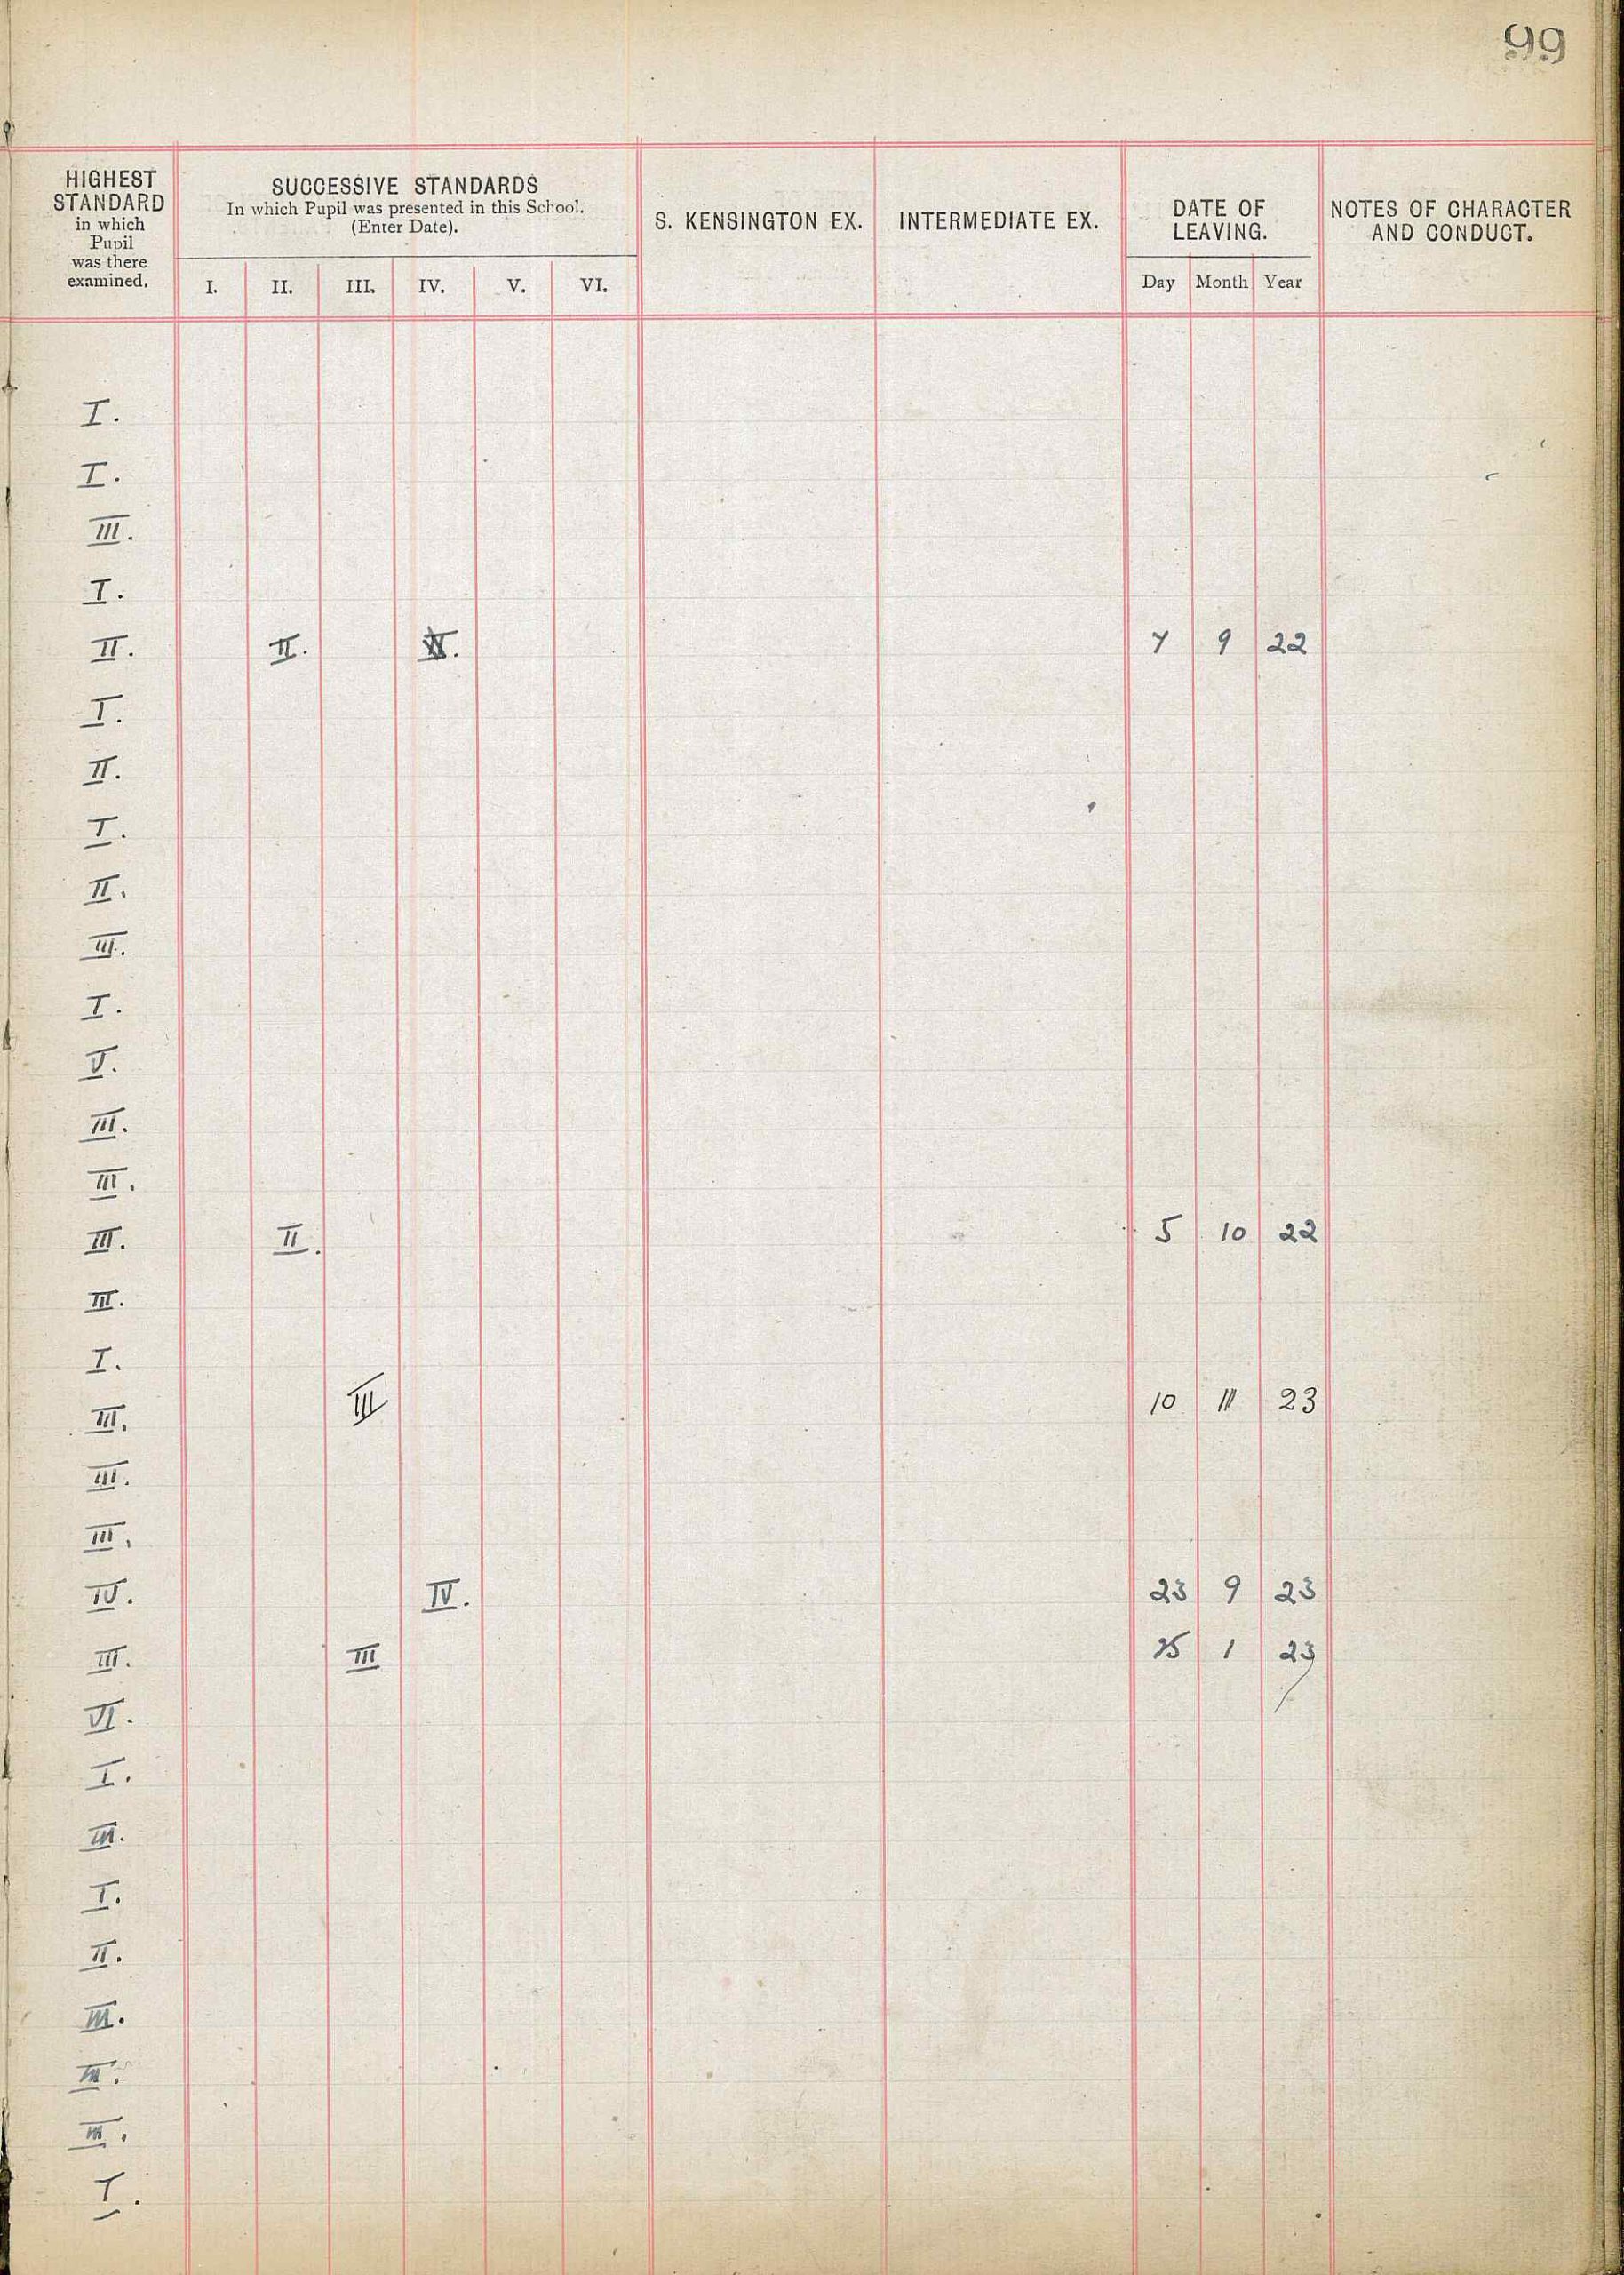 99
HIGHEST STANDARD in which Pupil was there examined.
SUCCESSIVE STANDARDS
In which Pupil was presented in this School.
(Enter Date).
I. II. III. IV. V. VI.
S. KENSINGTON EX.
INTERMEDIATE EX.
DATE OF LEAVING.
Day Month Year
NOTES OF CHARACTER AND CONDUCT.
I.
I.
III.
I.
II. II. 7 9 22
I.
II.
I.
II.
III.
I.
V.
III.
III.
III. II. 5 10 22
III.
I.
III. III 10 11 23
III.
III.
IV. IV. 23 9 23
III. III 25 1 23
VI.
I.
III.
I.
II.
III.
III.
III.
I.